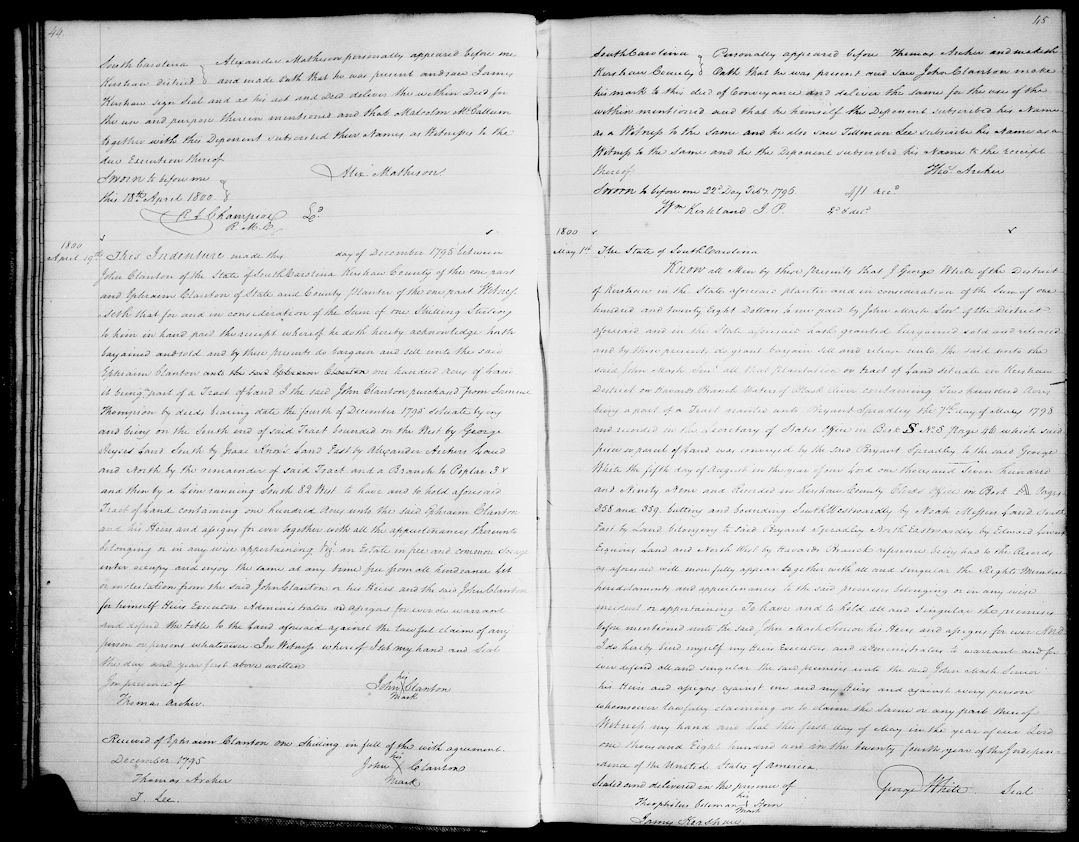 44
South Carolina } Alexander Matheson personally appeared before me
Kershaw district } and made oath that he was present and saw James
Kershaw sign Seal and as his act and Deed deliver the within Deed for
the use and purpose therein mentioned and that Malcolm McCallum
together with this Deponent subscribed their Names as Witnesses to the
due Execution thereof
Sworn to before me
this 18th April 1800
Alix Matheson
R. L. Champion
R. M. C.
1800
April 19th This Indenture made this day of December 1795 between
John Clanton of the State of South Carolina Kershaw County of the one part
and Ephraim Clanton of State and County Planter of the one part Witness
-seth that for and in consideration of the Sum of one Shilling Sterling
to him in hand paid the receipt whereof he doth hereby acknowledge hath
bargained and sold and by these presents do bargain and sell unto the said
Ephraim Clanton unto the said Ephraim Clanton one hundred acres of Land
it being part of a Tract of Land I the said John Clanton purchased from Samuel
Thompson by deeds bearing date the fourth of December 1795 situate lying
and being on the South end of said Tract bounded on the West by George
Land South by Isaac Knox's Land East by Alexander Archers Land
and North by the remainder of said Tract and a Branch to Poplar 3 X
and then by a Line running South 82 West to have and to hold aforesaid
Tract of Land containing one hundred Acres unto the said Ephraim Clanton
and his Heirs and assigns for ever together with all the appurtenances thereunto
belonging or in any wise appertaining Viz. an Estate in free and common Socage
enter occupy and enjoy the same at any time free from all hindrance let
or molestation from the said John Clanton or his Heirs and the said John Clanton
for himself Heirs Executors Administrators and assigns for ever do warrant
and defend the title to the Land aforesaid against the Lawful claim of any
person or persons whatsoever In Witness whereof I set my hand and Seal
the day and year first above written
In presence of
Thomas Archer.
his
John X Clanton
Mark
Received of Ephraim Clanton one Shilling in full of the with agreement.
December 1795
his
John X Clanton
Mark
Thomas Archer
T. Lee.
45
South Carolina } Personally appeared before Thomas Archer and maketh
Kershaw County } Oath that he was present and saw John Clanton make
his mark to this deed of Conveyance and deliver the same for the use of the
within mentioned and that he himself the Deponent subscribed his Name
as a Witness to the Same and he also saw Tillman Lee subscribe his Name as a
Witness to the Same and he the Deponent subscribed his Name to the receipt
thereof
Thos. Archer
Sworn to before me 22d Day Feby. 1796
Wm Kirkland J. P.
1800
May 1st The State of South Carolina
Know all Men by these Presents that I George White of the District
of Kershaw in the State aforesaid planter and in consideration of the Sum of one
hundred and twenty Eight Dollars to me paid by John Mash Senr. of the District
aforesaid and in the State aforesaid hath granted bargained sold and released
and by these presents do grant bargain sell and release unto the said unto the
said John Mash Senr. all that Plantation or tract of Land situate in Kershaw
District on Branch Waters of Black River containing Two hundred Acres
being a part of a Tract granted unto Bryant Spradley the 7th day of May 1798
and recorded in the Secretary of States Office in Book S No. 5 Page 46 which said
piece or parcel of Land was conveyed by the Said Bryant Spradley to the said George
White the fifth day of August in the year of our Lord one thousand Seven hundred
and Ninety Nine and Recorded in Kershaw County Clerks Office in Book A Pages
358 and 359. butting and bounding South Westwardly by Noah Land South
East by Land belonging to Said Bryant Spradley North Eastwardly by Edward
Esquires Land and North West by Branch reference being had to the Records
as aforesaid will more fully appear together with all and singular the Rights Members
hereditaments and appurtenances to the said premises belonging or in any wise
incident or appertaining To have and to hold all and singular the premises
before mentioned unto the said John Mash Senior his Heirs and assigns for ever And
I do hereby bind myself my Heirs Executors and administrators to warrant and for
ever defend all and singular the said premises unto the said John Mash Senior
his Heirs and assigns against me and my Heirs and against every person
whomsoever lawfully claiming or to claim the Same or any part thereof
Witness my hand and Seal this first day of May in the year of our Lord
one thous and Eight hundred and in the twenty fourth year of the Indepen-
-dance of the United States of America.
Sealed and delivered in the presence of
George White Seal
his
Theophilus Coleman X Horn
Mark
James Kershaw.